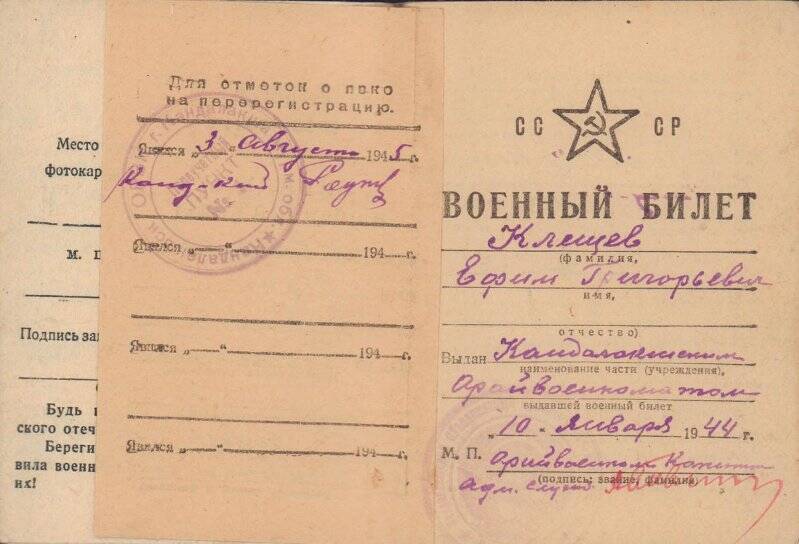 Место
фотокар
М. П
Подпись зал
Будь
ского отеч
Береги
вила военн
их!
Для отметок о явке
на перерегистрацию.
Явился „3" Августа 1945 г.
Явился „—" 194 г.
Явился „—" 194 г.
Явился „—" 194 г.
СС СР
ВОЕННЫЙ БИЛЕТ
Клещев
(фамилия,
Ефим Григорьевич
имя,
отчество)
Выдан Кандалакшским
наименование части (учреждения),
Райвоенкоматом
выдавшей военный билет
„10" января 1944 г.
М. П. Райвоенком Капитан
(подпись: звание, фамилия)
адм. служб